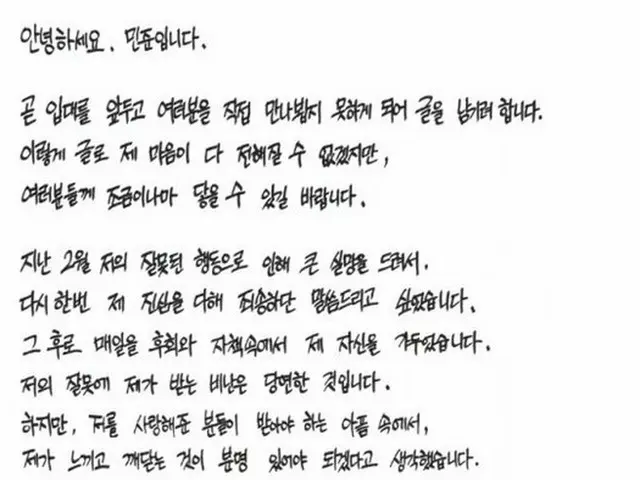 안녕하세요. 민준입니다.
곧 입대를 앞두고 여러분을 직접 만나뵙지 못하게 되어 글을 남기려 합니다.
이렇게 글로 제 마음이 다 전해질 수 없겠지만,
여러분들께 조금이나마 닿을 수 있길 바랍니다.
지난 2월 저의 잘못된 행동으로 인해 큰 실망을 드려서.
다시 한번 제 진심을 다해 죄송하단 말씀드리고 싶었습니다.
그 후로 매일을 후회와 자책속에서 제 자신을 가두었습니다.
저의 잘못에 제가 받는 비난은 당연한 것입니다.
하지만, 저를 사랑해준 분들이 받아야 하는 아픔 속에서,
제가 느끼고 깨닫는 것이 분명 있어야 되겠다고 생각했습니다.